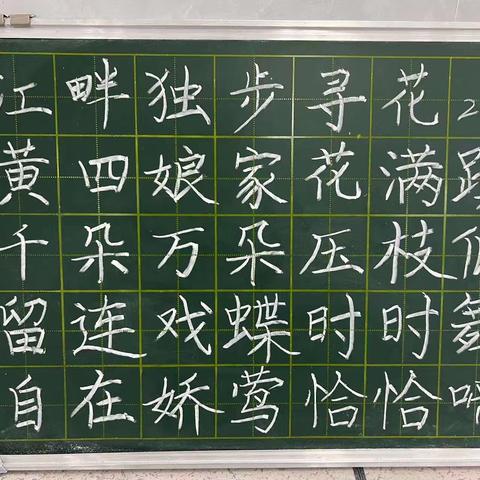 江畔独步寻花2
黄四娘家花满蹊
千朵万朵压枝低
留连戏蝶时时舞
自在娇莺恰恰啼